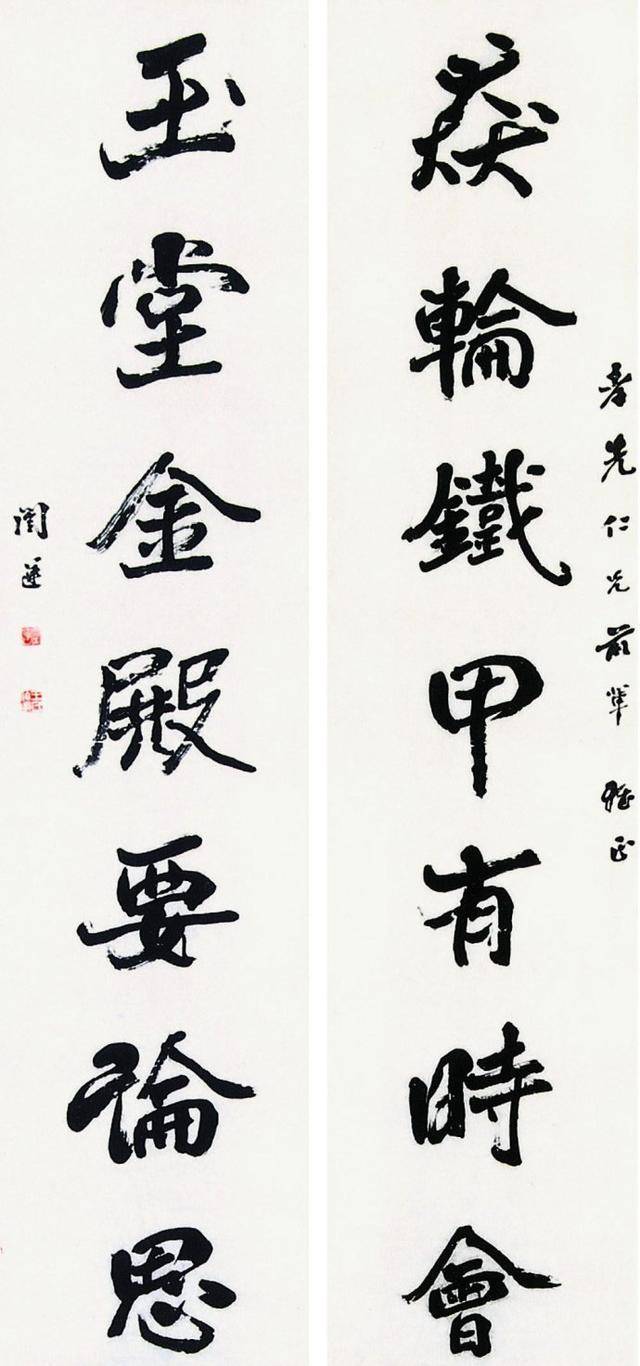 孝先仁兄前輩 雅正
猋輪鐵甲有時會
玉堂金殿要論思
周蓮